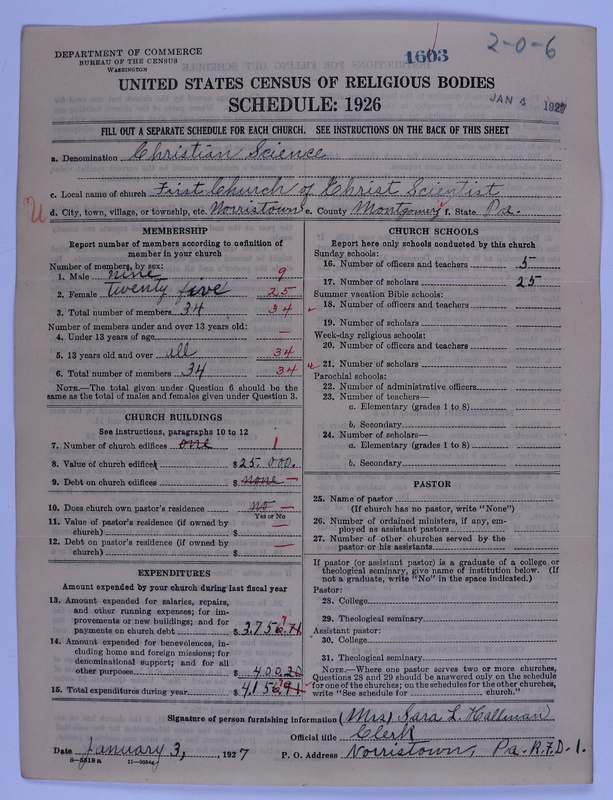 DEPARTMENT OF COMMERCE
BUREAU OF THE CENSUS
WASHINGTON
1603
2-0-6
UNITED STATES CENSUS OF RELIGIOUS BODIES
SCHEDULE: 1926
JAN 4 1927
FILL OUT A SEPARATE SCHEDULE FOR EACH CHURCH. SEE INSTRUCTIONS ON THE BACK OF THIS SHEET
a. Denomination Christian Science
c. Local name of church First Church of Christ Scientist
U d. City, town, village, or township, etc. Norristown e. County Montgomery f. State Pa.
MEMBERSHIP
Report number of members according to definition of
member in your church
Number of members, by sex:
1. Male nine 9
2. Female twenty five 25
3. Total number of members 34 34
Number of members under and over 13 years old:
4. Under 13 years of age —
5. 13 years old and over all 34
6. Total number of members 34 34
NOTE.—The total given under Question 6 should be
the same as the total of males and females given under Question 3.
CHURCH BUILDINGS
See instructions, paragraphs 10 to 12
7. Number of church edifices one 1
8. Value of church edifices $25.000.
9. Debt on church edifices $none —
10. Does church own pastor's residence no —
Yes or No
11. Value of pastor's residence (if owned by
church) $ —
12. Debt on pastor's residence (if owned by
church) $ —
EXPENDITURES
Amount expended by your church during last fiscal year
13. Amount expended for salaries, repairs,
and other running expenses; for im-
provements or new buildings; and for
payments on church debt $3.756.71
14. Amount expended for benevolences, in-
cluding home and foreign missions; for
denominational support; and for all
other purposes $400.20
15. Total expenditures during year $4.156.91
CHURCH SCHOOLS
Report here only schools conducted by this church
Sunday schools:
16. Number of officers and teachers 5
17. Number of scholars 25
Summer vacation Bible schools:
18. Number of officers and teachers
19. Number of scholars
Week-day religious schools:
20. Number of officers and teachers
21. Number of scholars
Parochial schools:
22. Number of administrative officers
23. Number of teachers—
a. Elementary (grades 1 to 8)
b. Secondary
24. Number of scholars—
a. Elementary (grades 1 to 8)
b. Secondary
PASTOR
25. Name of pastor
(If church has no pastor, write "None")
26. Number of ordained ministers, if any, em-
ployed as assistant pastors
27. Number of other churches served by the
pastor or his assistants
If pastor (or assistant pastor) is a graduate of a college or
theological seminary, give name of institution below. (If
not a graduate, write "No" in the space indicated.)
Pastor:
28. College
29. Theological seminary
Assistant pastor:
30. College
31. Theological seminary
NOTE.—Where one pastor serves two or more churches,
Questions 28 and 29 should be answered only on the schedule
for one of the churches; on the schedules for the other churches,
write "See schedule for church."
Signature of person furnishing information (Mrs) Sara L. Hallman
Official title Clerk
Date January 3, 1927 P. O. Address Norristown, Pa. R.F.D-1.
8—5518 a